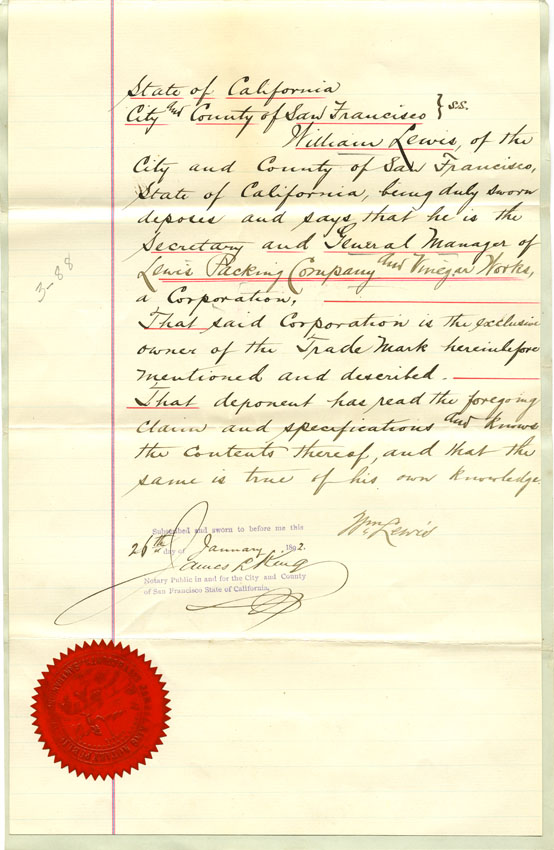 State of California
City and County of San Francisco } S.S.
William Lewis, of the
City and County of San Francisco,
State of California, being duly sworn
deposes and says that he is the
Secretary and General Manager of
Lewis Packing Company and Vinegar Works,
a Corporation,
That said Corporation is the exclusive
owner of the Trade Mark hereinbefore
mentioned and described.
That deponent has read the foregoing
claim and specifications and knows
the contents thereof, and that the
same is true of his own knowledge
3-88
Wm Lewis
Subscribed and sworn to before me this
26th day of January 1892.
James L King
Notary Public in and for the City and County
of San Francisco State of California.